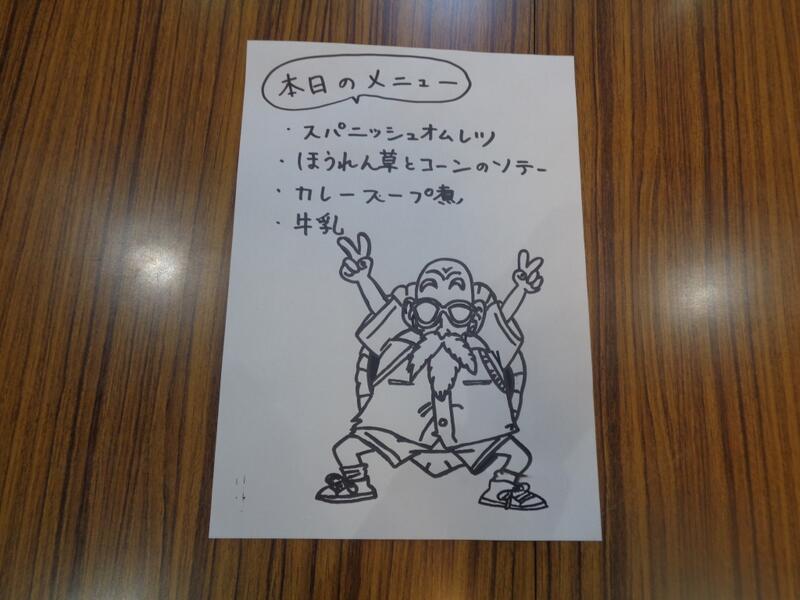 本日のメニュー
・スパニッシュオムレツ
・ほうれん草とコーンのソテー
・カレースープ煮
・牛乳